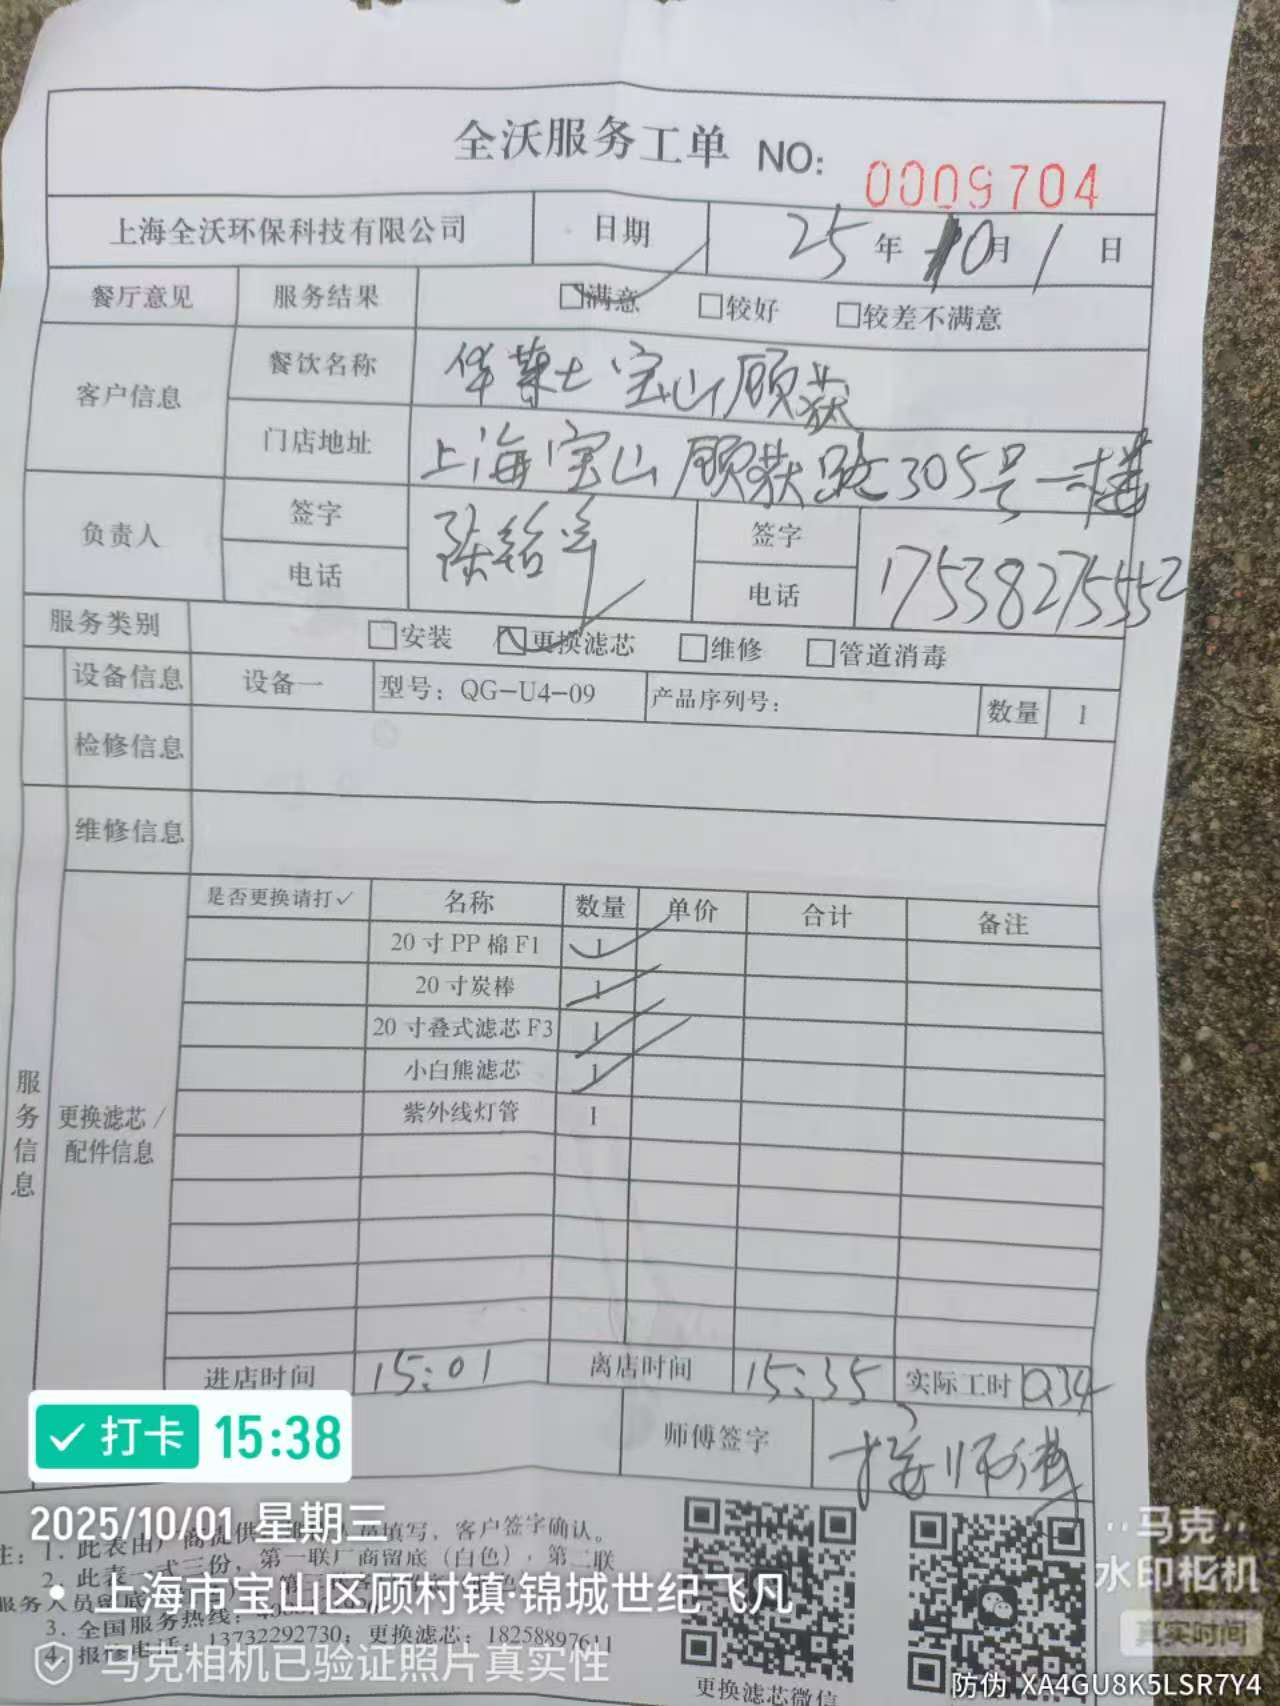 全沃服务工单 NO: 0009704
上海全沃环保科技有限公司 日期 25年10月1日
餐厅意见 服务结果 ☑满意 □较好 □较差不满意
客户信息 餐饮名称 华莱士宝山顾荻
门店地址 上海宝山顾荻路305号一楼
负责人 签字 陈 签字
电话 电话 17538275552
服务类别 □安装 ☑更换滤芯 □维修 □管道消毒
设备信息 设备一 型号：QG-U4-09 产品序列号： 数量 1
检修信息
维修信息
服务信息
更换滤芯/配件信息
是否更换请打✓ 名称 数量 单价 合计 备注
20寸PP棉F1 1 ✓
20寸炭棒 1
20寸叠式滤芯F3 1
小白熊滤芯 1
紫外线灯管 1
进店时间 15:01 离店时间 15:35 实际工时 0.34
师傅签字 师傅
打卡 15:38
2025/10/01 星期三
上海市宝山区顾村镇·锦城世纪飞凡
马克相机已验证照片真实性
注：1. 此表由厂商提供 填写，客户签字确认。
2. 此表一式三份，第一联厂商留底（白色），第二联
服务人员留底
3. 全国服务热线：
4. 报修电话：13732292730；更换滤芯：18258897611
更换滤芯微信
马克
水印相机
真实时间
防伪 XA4GU8K5LSR7Y4